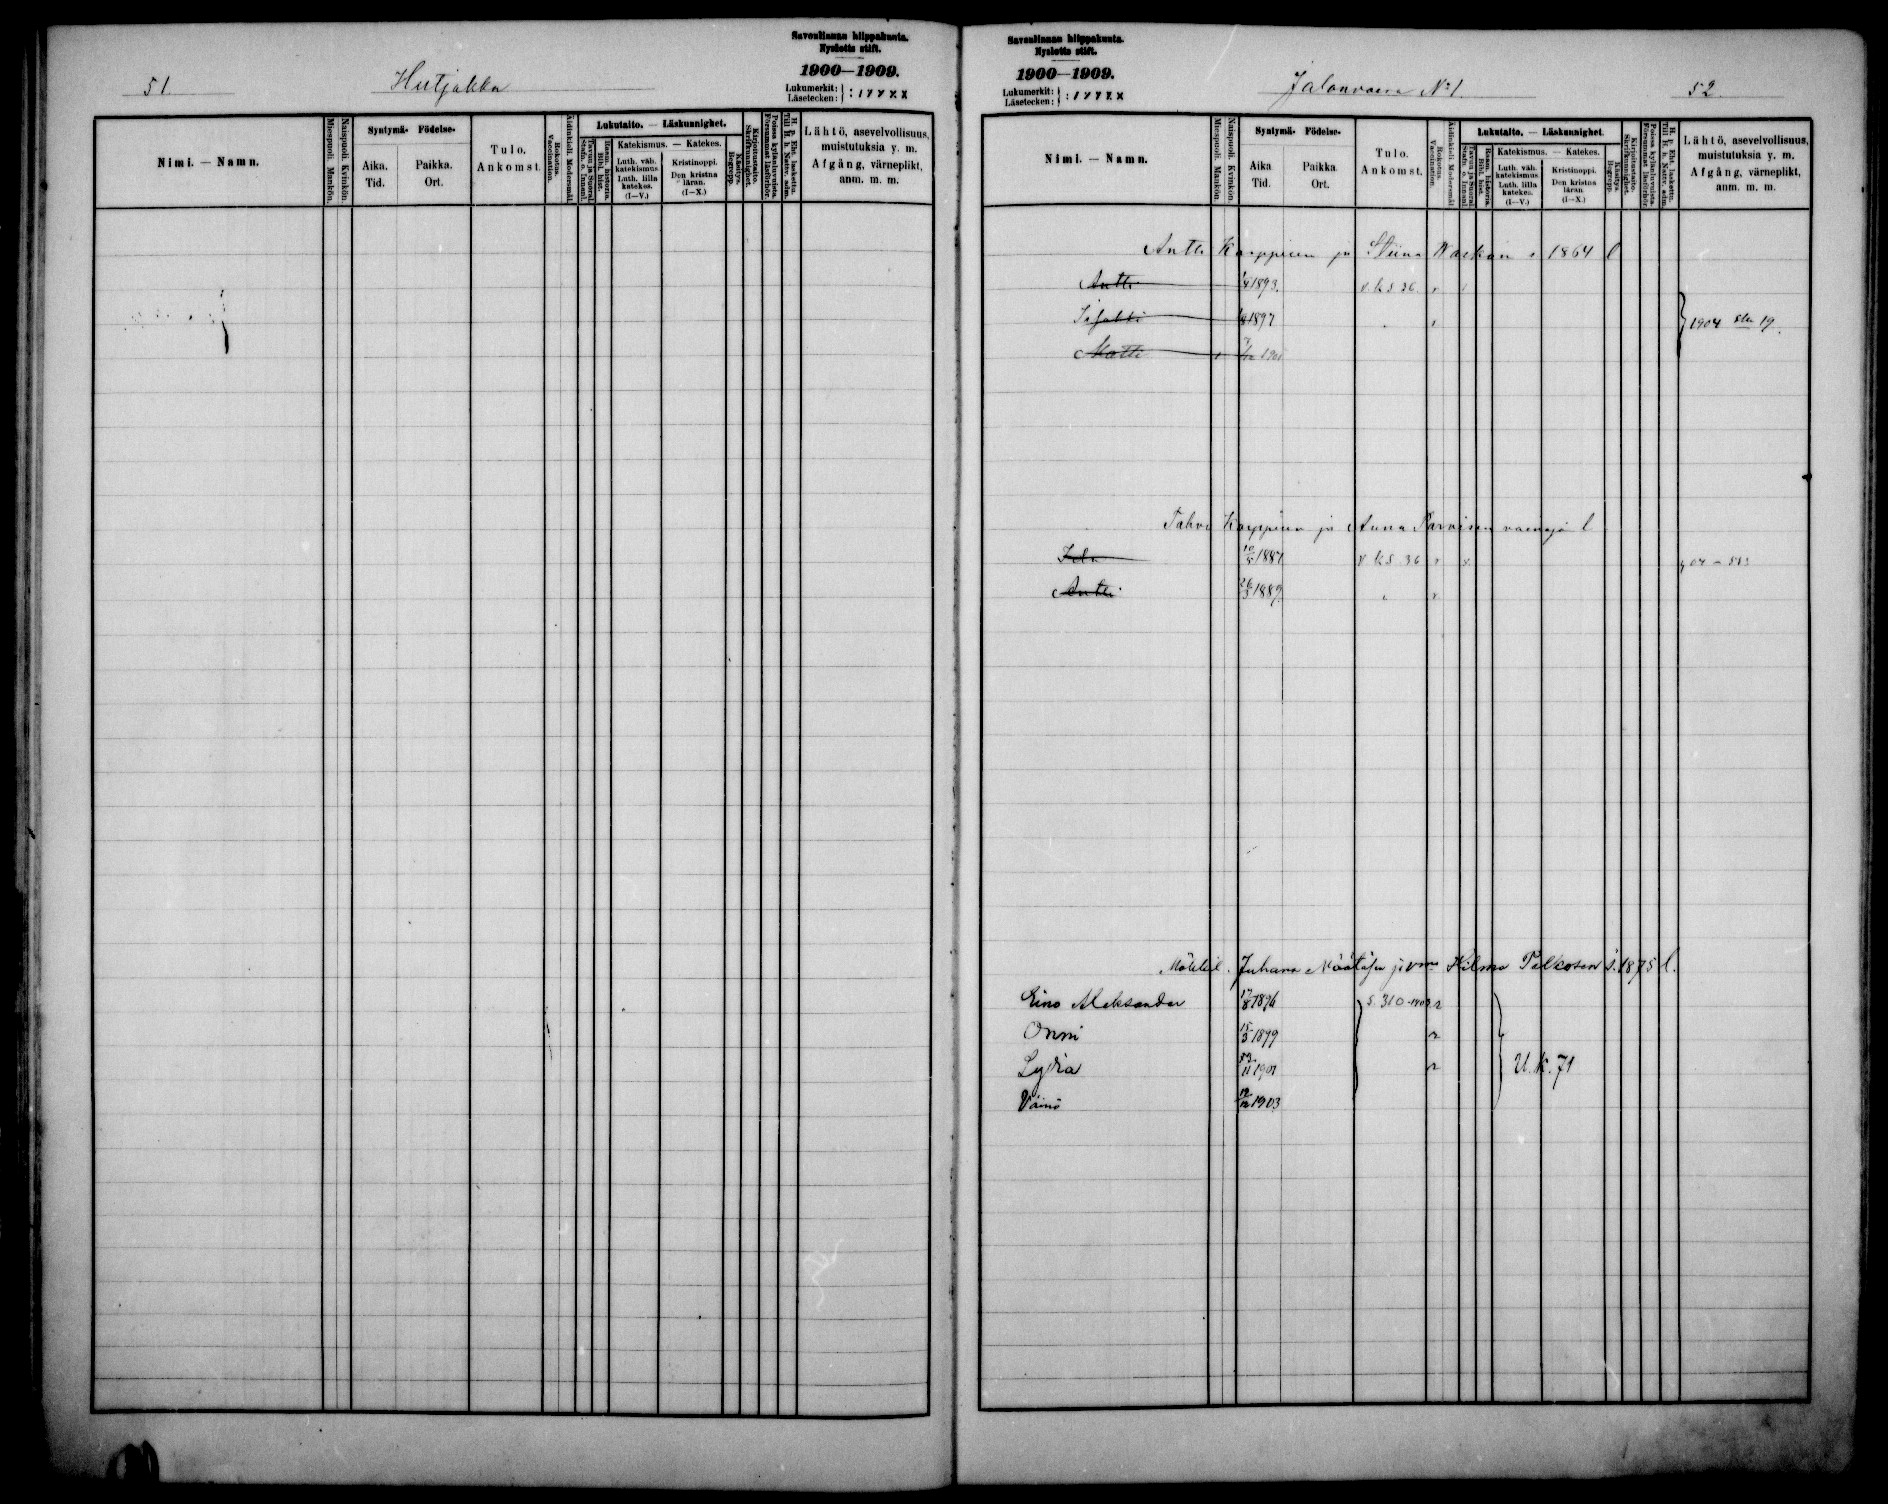 51
Hutjakka
Savonlinnan hiippakunta.
Nyslotts stift.
1900—1909.
Lukumerkit:
Läsetecken:
Nimi. — Namn.
Miespuoli. Mankön.
Naispuoli. Kvinkön.
Syntymä- Födelse-
Aika.
Tid.
Paikka.
Ort.
Tulo.
Ankomst.
Rokotus.
Vaccination.
Äidinkieli. Modersmål.
Lukutaito. — Läskunnighet.
Tavun ja Suoral.
Stafn. o. Innanl.
Raam. historia.
Bibl. hist.
Katekismus. — Katekes.
Luth. väh.
katekismus
Luth. lilla
katekes.
(I—V.)
Kristinoppi.
Den kristna
läran.
(I—X.)
Käsitys.
Begrepp.
Kirjoitustaito.
Skrifkunnighet.
Poissa kylänluvuista.
Försummat läsförhör.
H. p. Eht. laskettu.
Till H. h. Nattv. adm.
Lähtö, asevelvollisuus,
muistutuksia y. m.
Afgång, värneplikt,
anm. m. m.
Savonlinnan hiippakunta.
Nyslotts stift.
1900—1909.
Lukumerkit:
Läsetecken:
Jalonvaara No 1.
52.
Nimi. — Namn.
Miespuoli. Mankön.
Naispuoli. Kvinkön.
Syntymä- Födelse-
Aika
Tid.
Paikka.
Ort.
Tulo.
Ankomst.
Rokotus.
Vaccination.
Äidinkieli. Modersmål.
Lukutaito. — Läskunnighet.
Tavun ja Suoral.
Stafn. o. Innanl.
Raam. historia.
Bibl. hist.
Katekismus. — Katekes.
Luth. väh.
katekismus
Luth. lilla
katekes.
(I—V.)
Kristinoppi.
Den kristna
läran.
(I—X.)
Käsitys.
Begrepp.
Kirjoitustaito.
Skrifkunnighet.
Poissa kylänluvuista.
Försummat läsförhör.
H. p. Eht. laskettu.
Till H. h. Nattv. adm.
Lähtö, asevelvollisuus,
muistutuksia y. m.
Afgång, värneplikt,
anm. m. m.
Antti Karppisen ja Stiina s 1864 l
Antti 1893. v. k s 36
1897 1904 19.
Matti
Karppisen ja Anna l
Ida 1887 v. k s. 36
Antti 26/3 1889.
Juhana Määtäsen ja vmo Hilma Pelkosen s. 1875 l.
Eino Aleksander 17/8 1896 s. 310-1903
Onni 15/3 1899
Lydia 1901 U. k. 71
Väinö 1903